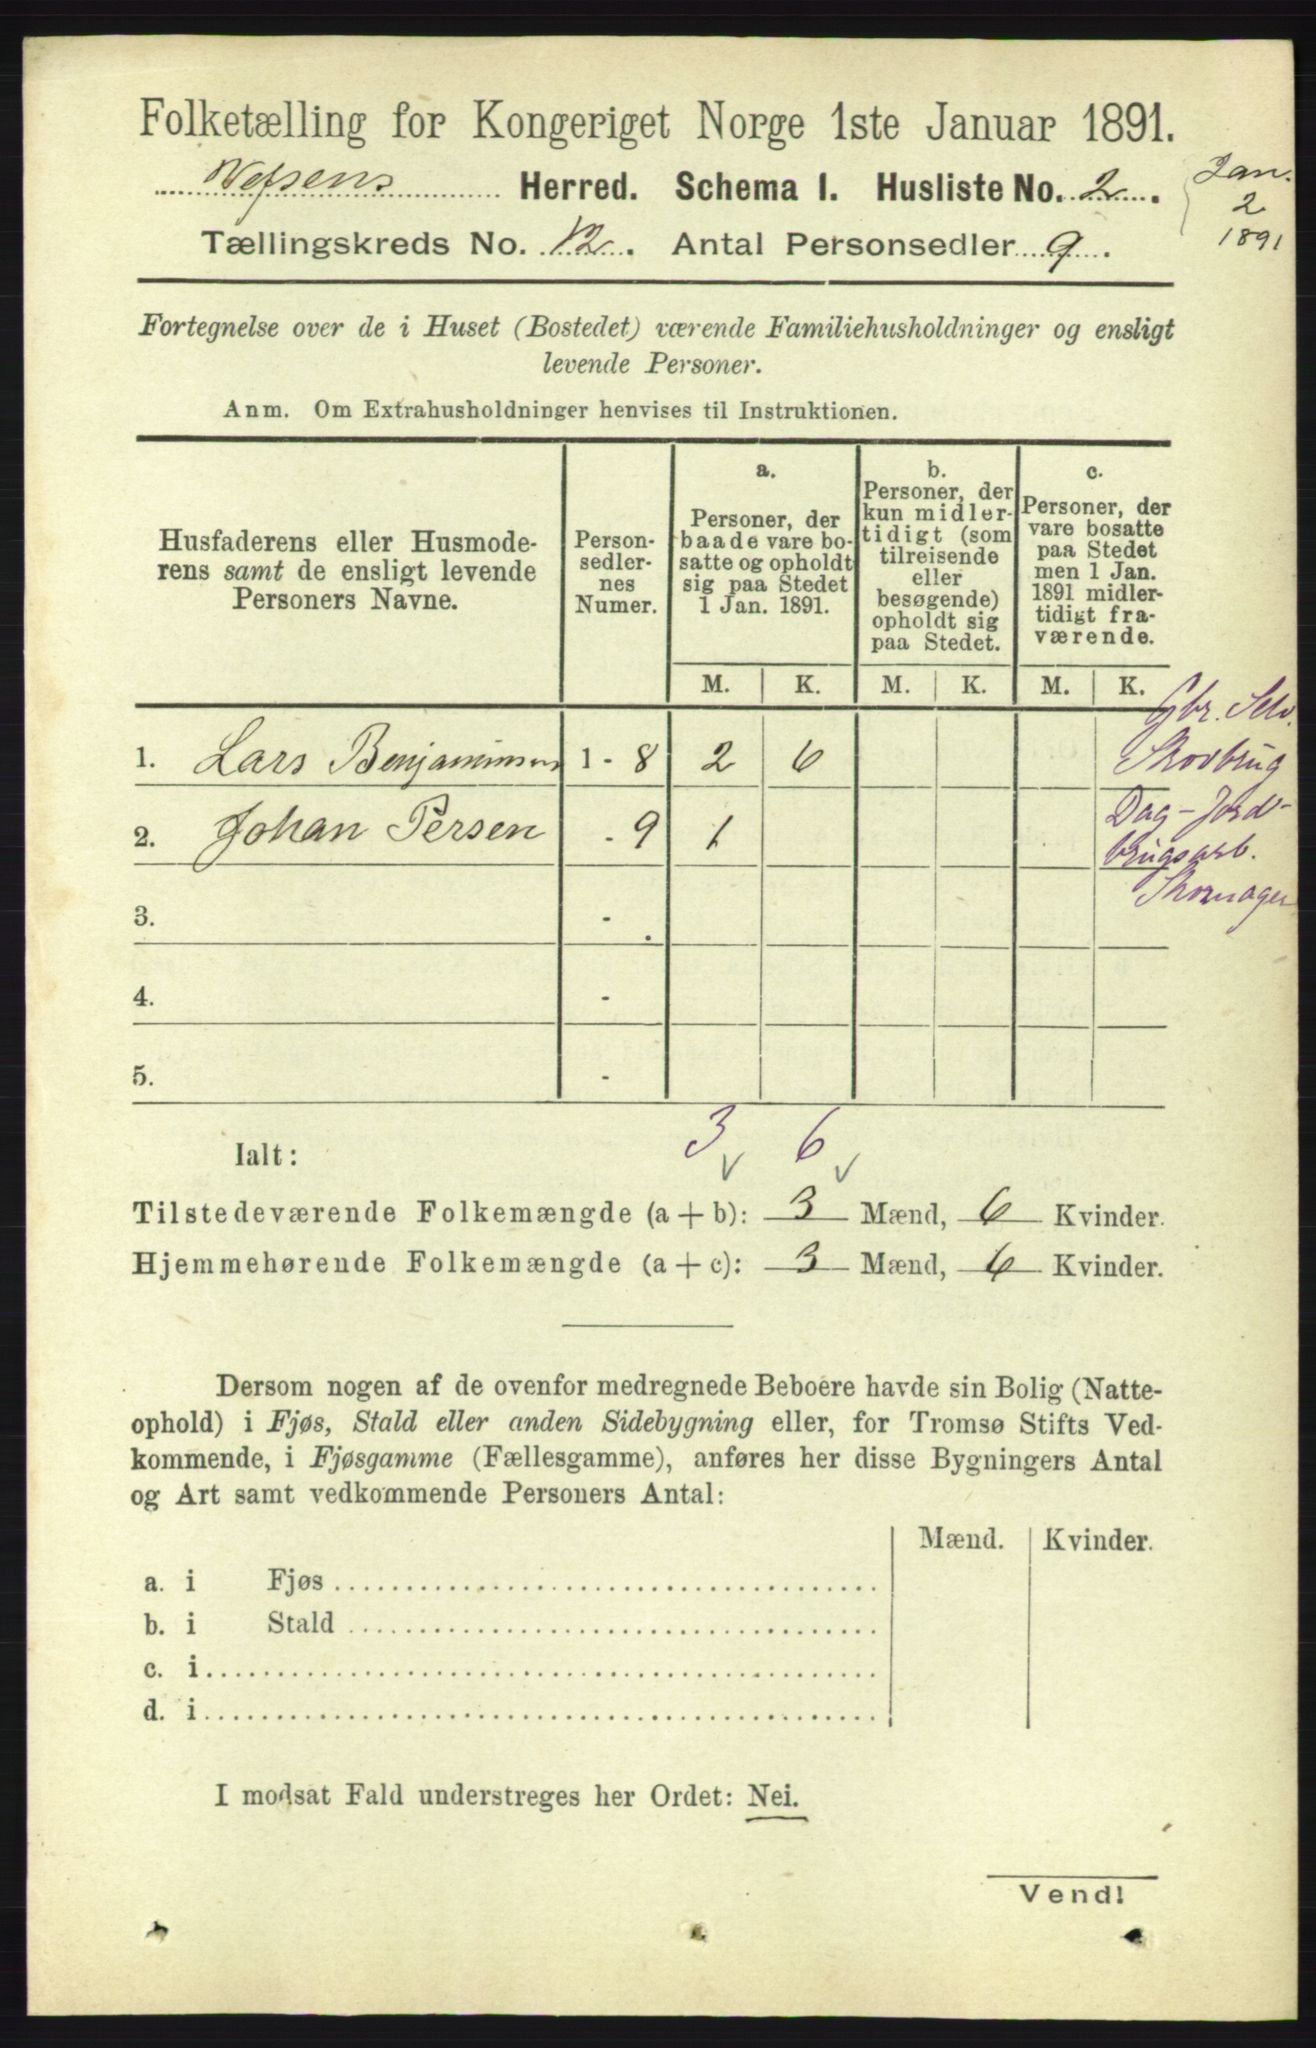 Folketælling for Kongeriget Norge 1ste Januar 1891.
Vefsens Herred. Schema 1. Husliste No. 2.
Jan. 2 1891
Tællingskreds No. 12. Antal Personsedler 9.
Fortegnelse over de i Huset (Bostedet) værende Familiehusholdninger og ensligt
levende Personer.
Anm. Om Extrahusholdninger henvises til Instruktionen.
Husfaderens eller Husmode-
rens samt de ensligt levende
Personers Navne.
Person-
sedler-
nes
Numer.
a.
Personer, der
baade vare bo-
satte og opholdt
sig paa Stedet
1 Jan. 1891.
b.
Personer, der
kun midler-
tidigt (som
tilreisende
eller
besøgende)
opholdt sig
paa Stedet.
c.
Personer, der
vare bosatte
paa Stedet
men 1 Jan.
1891 midler-
tidigt fra-
værende.
M. K. M. K. M. K.
Gbr. Selv.
1. Lars Benjaminsen 1 - 8 2 6 Skovbrug
2. Johan Persen - 9 1 Dag-Jord-
brugsarb.
Skomager
3. -
4. -
5. -
Ialt: 3 6
Tilstedeværende Folkemængde (a + b): 3 Mænd, 6 Kvinder.
Hjemmehørende Folkemængde (a + c): 3 Mænd, 6 Kvinder.
Dersom nogen af de ovenfor medregnede Beboere havde sin Bolig (Natte-
ophold) i Fjøs, Stald eller anden Sidebygning eller, for Tromsø Stifts Ved-
kommende, i Fjøsgamme (Fællesgamme), anføres her disse Bygningers Antal
og Art samt vedkommende Personers Antal:
Mænd. Kvinder.
a. i Fjøs
b. i Stald
c. i
d. i
I modsat Fald understreges her Ordet: Nei.
Vend!